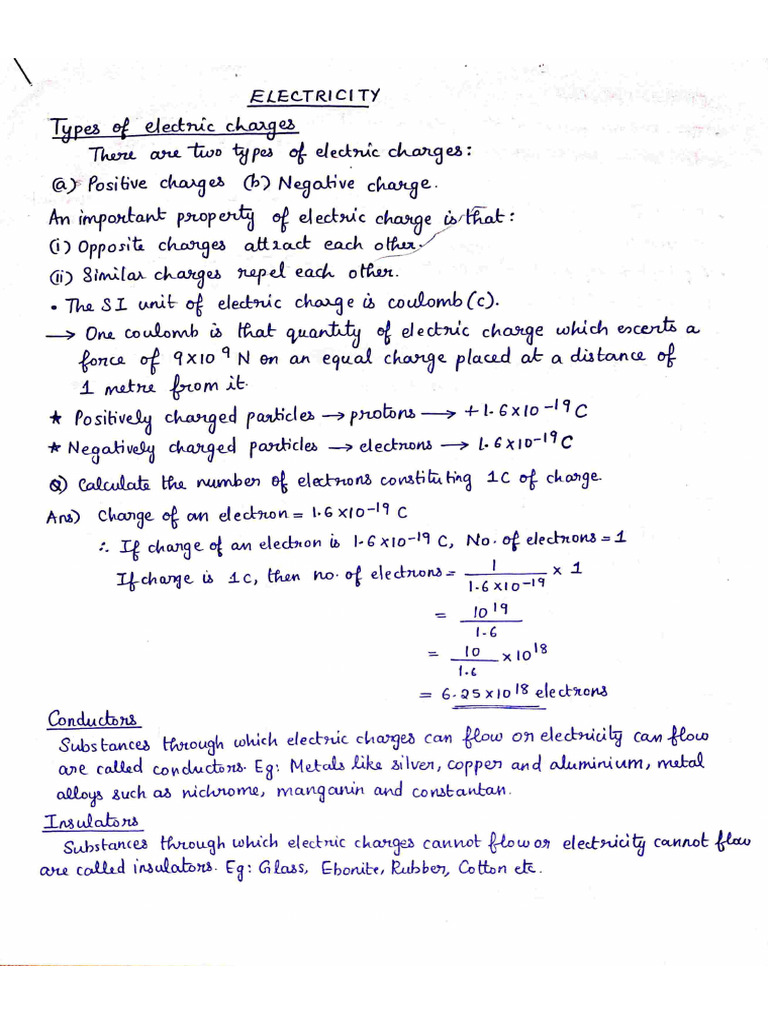 ELECTRICITY
Types of electric charges
There are two types of electric charges:
(a) Positive charges (b) Negative charge.
An important property of electric charge is that:
(i) Opposite charges attract each other.
(ii) Similar charges repel each other.
• The SI unit of electric charge is coulomb (c).
→ One coulomb is that quantity of electric charge which escerts a
force of 9×10⁹ N on an equal charge placed at a distance of
1 metre from it.
★ Positively charged particles → protons → +1.6×10⁻¹⁹ C
★ Negatively charged particles → electrons → 1.6×10⁻¹⁹ C
Q) Calculate the number of electrons constituting 1C of charge.
Ans) Charge of an electron = 1.6×10⁻¹⁹ C
∴ If charge of an electron is 1.6×10⁻¹⁹ C, No. of electrons = 1
If charge is 1C, then no. of electrons = 1/1.6×10⁻¹⁹ × 1
= 10¹⁹/1.6
= 10/1.6 × 10¹⁸
= 6.25×10¹⁸ electrons
Conductors
Substances through which electric charges can flow or electricity can flow
are called conductors. Eg: Metals like silver, copper and aluminium, metal
alloys such as nichrome, manganin and constantan.
Insulators
Substances through which electric charges cannot flow or electricity cannot flow
are called insulators. Eg: Glass, Ebonite, Rubber, Cotton etc.